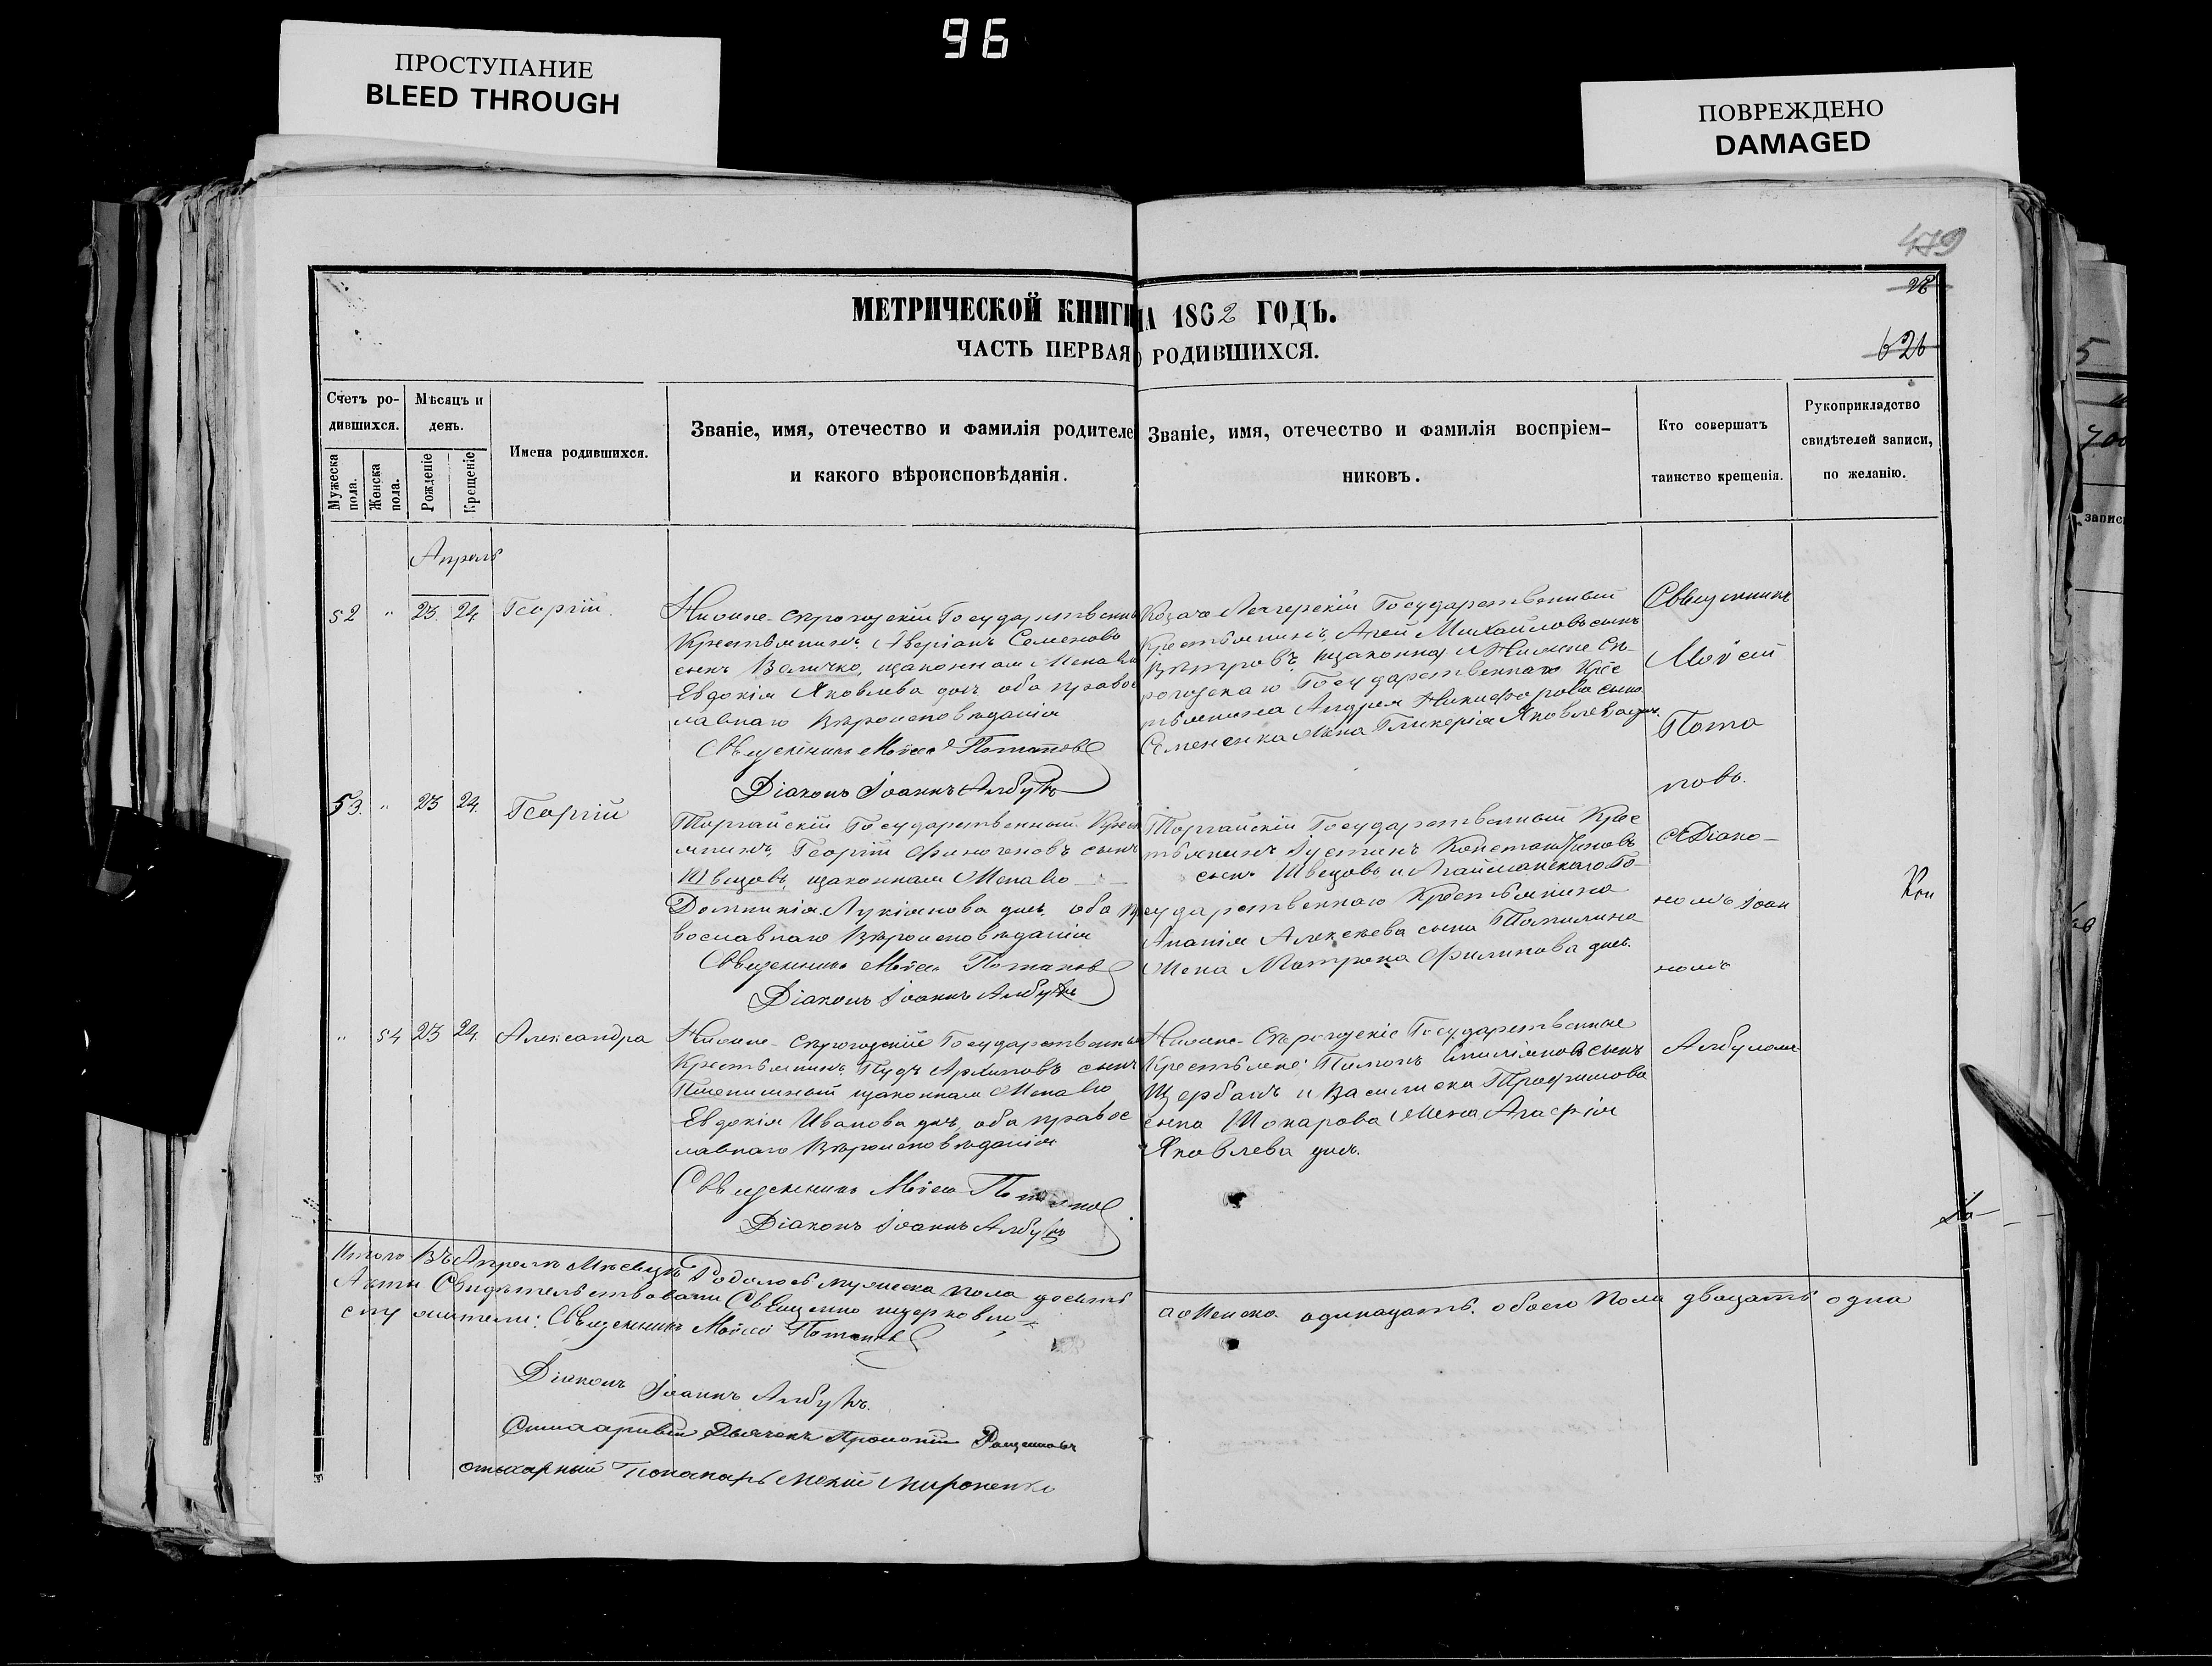 96
ПРОСТУПАНИЕ
BLEED THROUGH
ПОВРЕЖДЕНО
DAMAGED
479
28
626
МЕТРИЧЕСКОЙ КНИГИ НА 1862 ГОДЪ.
ЧАСТЬ ПЕРВАЯ О РОДИВШИХСЯ.
Счетъ ро-
дившихся.
Мужеска пола.
Женска пола.
Мѣсяцъ и
день.
Рожденіе
Крещеніе
Имена родившихся.
Званіе, имя, отечество и фамилія родителе
и какого вѣроисповѣданія.
Званіе, имя, отечество и фамилія воспріем-
никовъ.
Кто совершатъ
таинство крещенія.
Рукоприкладство
свидѣтелей записи,
по желанію.
Апрель
52 " 23 24 Георгій
Нижне-Сѣрогозскій Государственны
Крестьянинъ Аверіанъ Семеновъ
сынъ Величко, изаконная Жена Его
Евдокія Яковлева дчь. оба правос
лавнаго Вѣроисповѣданія
Священникъ Мойсей Потаповъ
Діаконъ Іоаннъ Албулъ
Государственный
Крестьянинъ Михайловъ сынъ
Вѣтровъ, изаконная Нижне Сѣ-
рогозскаго Государственнаго Крес
тьянина Андрея Никифорова сына
Семененка Жена Гликерія Яковлева дчь.
Священникъ
Мойсей
Пота
повъ.
53. " 23 24. Георгій
Торгайскій Государственный Крест
янинъ, Георгій Финогеновъ сынъ
Швецовъ, изаконная Жена Его
Домникія Лукіянова дчь. оба пр
вославнаго Вѣроисповѣданія
Священникъ Мойсей Потаповъ
Діаконъ Іоаннъ Албулъ
Торгайскій Государственный Крес
тьянинъ Іустинъ Константиновъ
сынъ Швецовъ и Агайманскаго Го-
сударственнаго Крестьянина
Ананія Алексѣева сына Томилина
Жена Матрона Филипова дчь.
Діако-
номъ Іоан
номъ
" 54 23 24. Александра
Нижне-Сѣрогозскій Государственны
Крестьянинъ Пудъ Архиповъ сынъ
Пшеничный изаконная Жена Его
Евдокія Иванова дчь. оба правос
лавнаго Вѣроисповѣданія
Священникъ Мойсей Потаповъ
Діаконъ Іоаннъ Албулъ
Нижне-Сѣрогозскіе Государственные
Крестьяне: Емиліяновъ сынъ
Щербакъ и Трофимова
сына Токарова Жена Агафія
Яковлева дчь.
Албуломъ
Итого Въ Апрелѣ Мѣсяцѣ Родилось мужеска пола десять
а Женска одинадцать. обоего Пола двацать одна
Акты Свидѣтельствовали Священно ицерковно-
служители: Священникъ Мойсей Потаповъ
Діаконъ Іоаннъ Албулъ.
Дьячекъ
Пономарь Мироненко